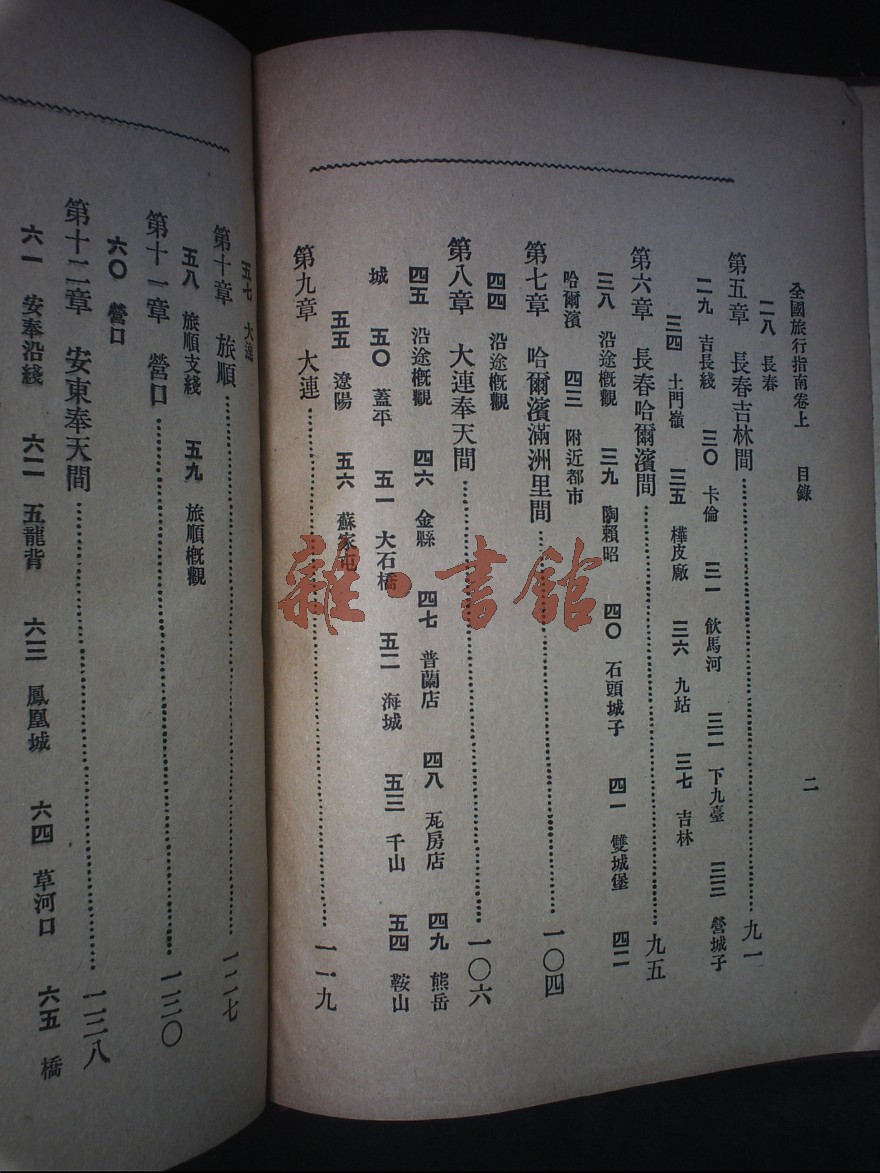 全國旅行指南卷上　目錄　二
二八　長春
第五章　長春吉林間……九一
二九　吉長綫　三〇　卡倫　三一　飲馬河　三二　下九臺　三三　營城子
三四　土門嶺　三五　樺皮廠　三六　九站　三七　吉林
第六章　長春哈爾濱間……九五
三八　沿途概觀　三九　陶賴昭　四〇　石頭城子　四一　雙城堡　四二
哈爾濱　四三　附近都市
第七章　哈爾濱滿洲里間……一〇四
四四　沿途概觀
第八章　大連奉天間……一〇六
四五　沿途概觀　四六　金縣　四七　普蘭店　四八　瓦房店　四九　熊岳
城　五〇　蓋平　五一　大石橋　五二　海城　五三　千山　五四　鞍山
五五　遼陽　五六　蘇家屯
第九章　大連……一一九
五七　大連
第十章　旅順……一二七
五八　旅順支綫　五九　旅順概觀
第十一章　營口……一三〇
六〇　營口
第十二章　安東奉天間……一三八
六一　安奉沿綫　六二　五龍背　六三　鳳凰城　六四　草河口　六五　橋
雜·書館